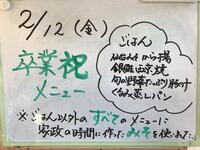 2/12(金)
卒業祝
メニュー
ごはん
仙台みそから揚
銀鮭西京焼
旬の野菜たっぷり豚汁
くるみ蒸しパン
※ごはん以外のすべてのメニューに
家政の時間に作ったみそを使いました。